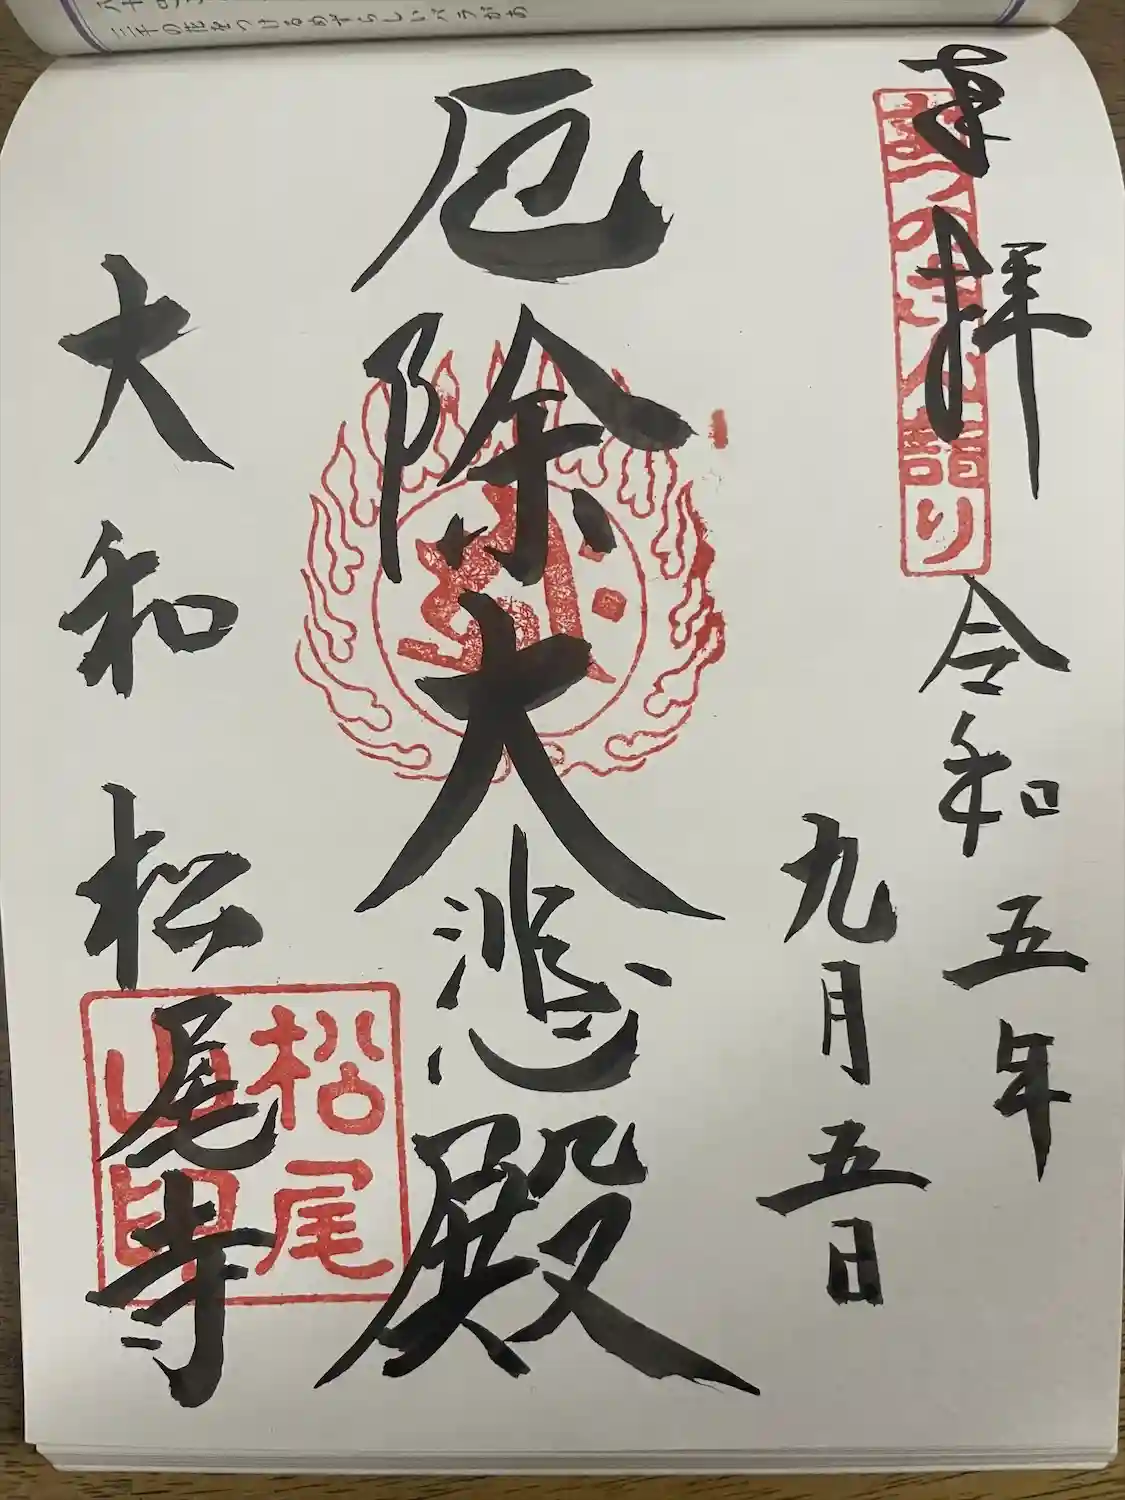 奉拝
令和五年
九月五日
厄除大悲殿
大和
松尾寺
まつのお大詣り
松尾
山印